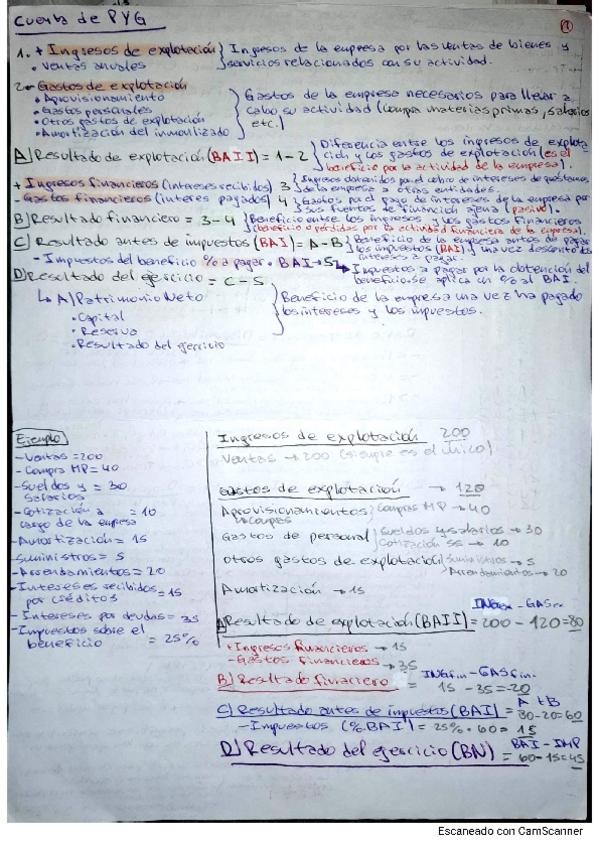 Cuenta de PYG
1
1. + Ingresos de explotación } Ingresos de la empresa por las ventas de bienes y
• Ventas anuales } servicios relacionados con su actividad.
2. - Gastos de explotación
• Aprovisionamiento } Gastos de la empresa necesarios para llevar a
• Gastos personales } cabo su actividad (compra materias primas, salarios
• Otros gastos de explotación } etc.)
• Amortización del inmovilizado
A) Resultado de explotación (BAII) = 1 - 2 } Diferencia entre los ingresos de explota
ción y los gastos de explotación (es el
beneficio por la actividad de la empresa).
+ Ingresos financieros (intereses recibidos) 3 } Ingresos obtenidos por el cobro de intereses de préstamos
de la empresa a otras entidades.
- Gastos financieros (interes pagados) 4 } Gastos por el pago de intereses de la empresa por
sus fuentes de financión ajena (pasivo).
B) Resultado financiero = 3 - 4 } Beneficio entre los ingresos y los gastos financieros
(beneficio o pérdidas por la actividad financiera de la empresa).
C) Resultado antes de impuestos (BAI) = A - B } Beneficio de la empresa antes de pagar
los impuestos (BAI) y una vez descontado
intereses a pagar.
- Impuestos del beneficio % a pagar • BAI → 5 → Impuestos a pagar por la obtención del
beneficio. Se aplica un % al BAI.
D) Resultado del ejercicio = C - 5
↳ A) Patrimonio Neto } Beneficio de la empresa una vez ha pagado
• Capital } los intereses y los impuestos.
• Reserva
• Resultado del ejercicio
Ejemplo
- Ventas = 200
- Compra MP = 40
- Sueldos y = 30
salarios
- Cotización a = 10
cargo de la empresa
- Amortización = 15
- Suministros = 5
- Arrendamientos = 20
- Intereses recibidos = 15
por créditos
- Intereses por deudas = 35
- Impuestos sobre el
beneficio = 25%
Ingresos de explotación 200
Ventas → 200 (siempre es el único)
Gastos de explotación → 120
Aprovisionamientos } Compras MP → 40
↳ Compras
Gastos de personal } Sueldos y salarios → 30
Cotización SS → 10
Otros gastos de explotación } Suministros → 5
Arrendamientos → 20
Amortización → 15
INGex - GASex
A) Resultado de explotación (BAII) = 200 - 120 = 80
+ Ingresos financieros → 15
- Gastos financieros → 35
INGfin - GASfin
B) Resultado financiero = 15 - 35 = 20
A + B
C) Resultado antes de impuestos (BAI) = 80 - 20 = 60
- Impuestos (% BAI) = 25% • 60 = 15
BAI - IMP
D) Resultado del ejercicio (BN) = 60 - 15 = 45
Escaneado con CamScanner